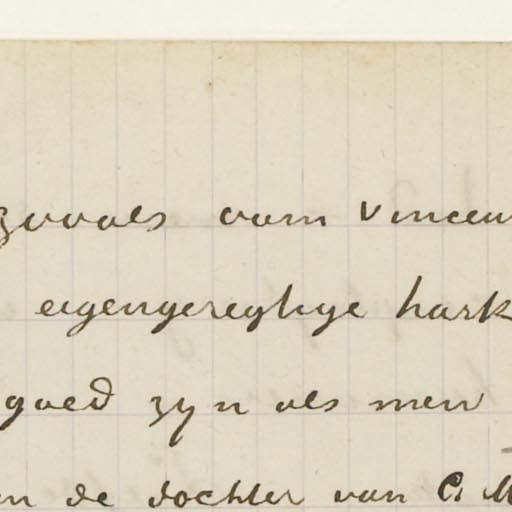 zooals oom Vincen
eigengeregtige hark
goed zyn als men
en de dochter van C. M